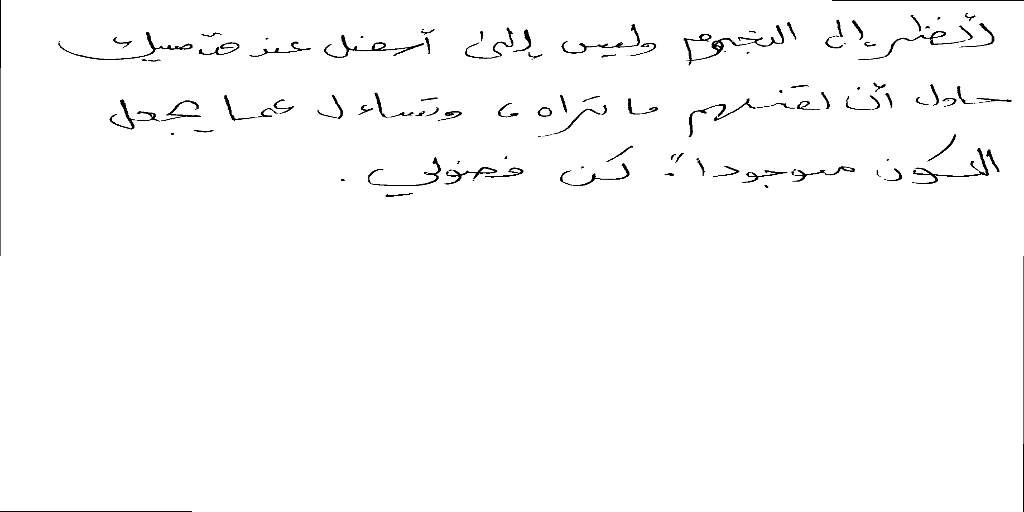 انظر إلى النجوم وليس إلى أسفل عند قدميك
حاول أن تفهم ما تراه، وتساءل عما يجعل
الكون موجودا". كن فضولي.